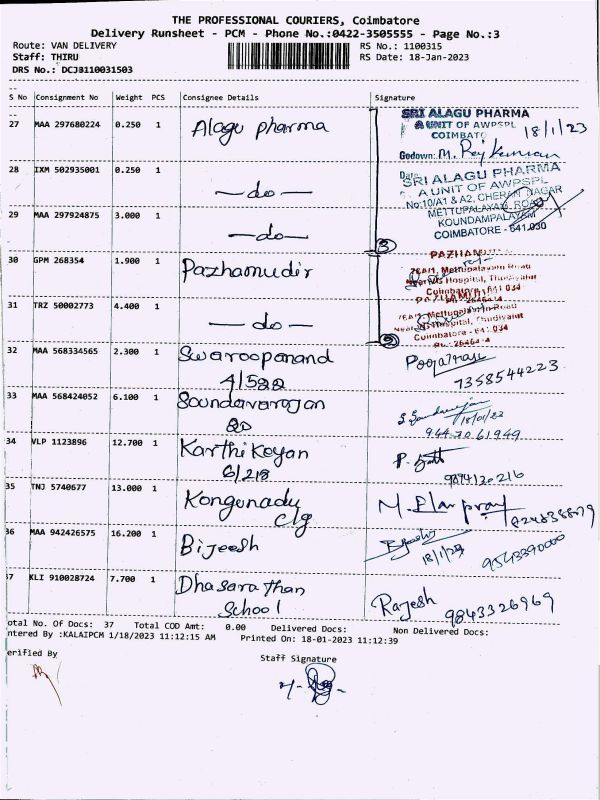 THE PROFESSIONAL COURIERS, Coimbatore
Delivery Runsheet - PCM - Phone No.:0422-3505555 - Page No.:3
Route: VAN DELIVERY RS No.: 1100315
Staff: THIRU RS Date: 18-Jan-2023
DRS No.: DCJB110031503
S No Consignment No Weight PCS Consignee Details Signature
27 MAA 297680224 0.250 1 Alagu pharma
SRI ALAGU PHARMA
A UNIT OF AWPSPL
COIMBATO 18/1/23
Godown: M. Rajkumar
Date
28 IXM 502935001 0.250 1 -do-
SRI ALAGU PHARMA
A UNIT OF AWPSPL
No:10/A1 & A2, CHERAN NAGAR
29 MAA 297924875 3.000 1 -do-
METTUPALAYAM ROAD
KOUNDAMPALAYAM
COIMBATORE - 641.030
3
30 GPM 268354 1.900 1 Pazhamudir
PAZHAMU
Mettupalayam Road
Hospital, Thudiyalur
Coimbatore - 641 034
31 TRZ 50002773 4.400 1 -do-
Mettupalayam Road
Hospital, Thudiyalur
Coimbatore - 641 034
32 MAA 568334565 2.300 1 Swaroopanand
4/522 7358544223
33 MAA 568424052 6.100 1 Soundavarajan
80 9447061949
34 VLP 1123896 12.700 1 Karthikeyan
6/218
35 TNJ 5740677 13.000 1 Kongunadu
clg
36 MAA 942426575 16.200 1 Bijeesh
18/1/23 9543390000
37 KLI 910028724 7.700 1 Dhasarathan
School Rajesh 9843326969
otal No. Of Docs: 37 Total COD Amt: 0.00 Delivered Docs: Non Delivered Docs:
ntered By :KALAIPCM 1/18/2023 11:12:15 AM Printed On: 18-01-2023 11:12:39
erified By Staff Signature